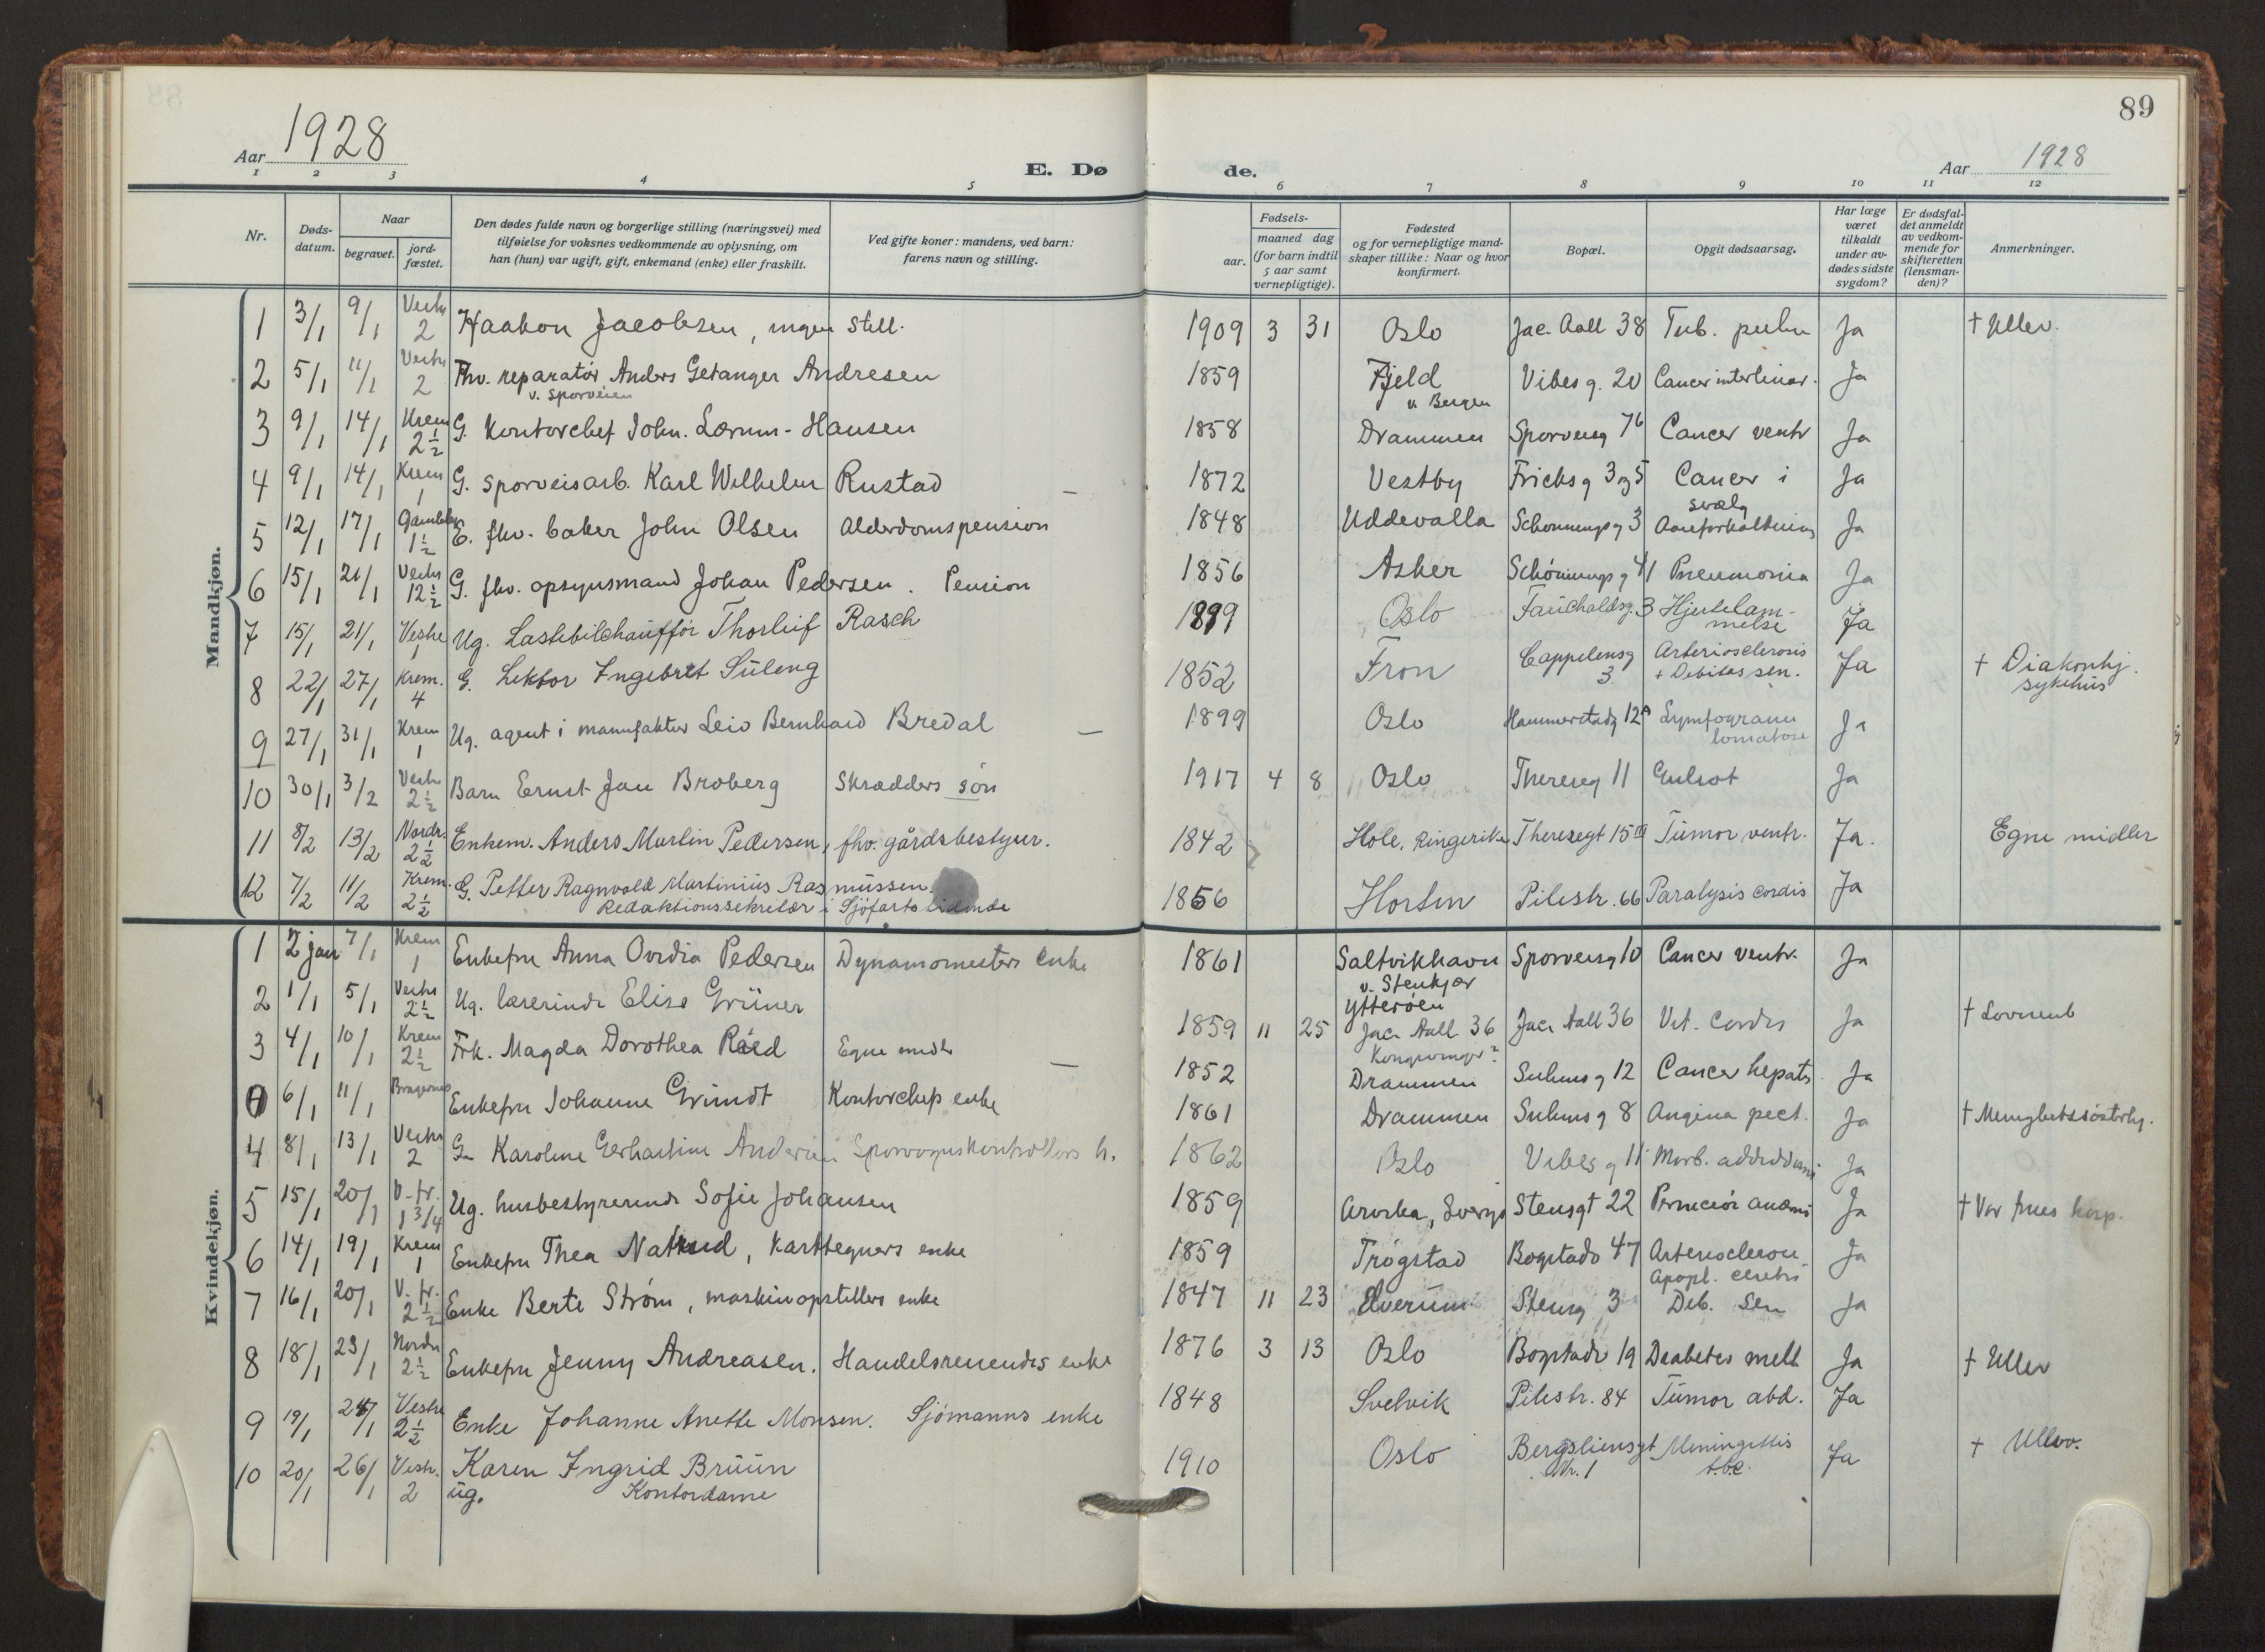 89
Aar 1928
E. Dø
de.
Aar 1928
1 2 3 4 5 6 7 8 9 10 11 12
Nr.
Døds-
datum.
Naar
begravet.
jord-
fæstet.
Den dødes fulde navn og borgerlige stilling (næringsvei) med
tilføielse for voksnes vedkommende av oplysning, om
han (hun) var ugift, gift, enkemand (enke) eller fraskilt.
Ved gifte koner: mandens, ved barn:
farens navn og stilling.
Fødsels-
aar.
maaned dag
(for barn indtil
5 aar samt
vernepligtige).
Fødested
og for vernepligtige mand-
skaper tillike: Naar og hvor
konfirmert.
Bopæl.
Opgit dødsaarsag.
Har læge
været
tilkaldt
under av-
dødes sidste
sygdom?
Er dødsfal-
det anmeldt
av vedkom-
mende for
skifteretten
(lensman-
den)?
Anmerkninger.
Mandkjøn.
1 3/1 9/1 2 Haakon Jacobsen, ingen still. 1909 3 31 Oslo Jac. Aall 38 Tub. pulm Ja † Ullev.
2 5/1 11/1 2 Fhv. reparatør Anders Getanger Andresen 1859 Fjeld Vibesg. 20 Cancer Ja
v. Sporveien v. Bergen
3 9/1 14/1 Krem 2½ G. Kontorchef John. Lærum-Hansen 1858 Drammen Sporveisg 76 Cancer ventr Ja
4 9/1 14/1 Krem 1 G. sporveisarb. Karl Wilhelm Rustad – 1872 Vestby Fricksg 3 og 5 Cancer i Ja
svælg
5 12/1 17/1 1½ E. fhv. baker John Olsen Alderdomspension 1848 Uddevalla Schønningsg 3 Aareforkalkning Ja
6 15/1 21/1 12½ G. fhv. opsynsmand Johan Pedersen. Pension 1856 Asker Schönningsg 41 Pneumonia Ja
7 15/1 21/1 Vestre 1 Ug. Lastebilchauffør Thorleif Rasch 1899 Oslo Fauchaldsg. 3 Hjertelam- Ja
melse
8 22/1 27/1 Krem. 4 G. Lektor Ingebret Süleng 1852 Fron Cappelensg Arteriosclerosis Ja † Diakonhj.
3 + Debitas sen. sykehus
9 27/1 31/1 Krem 1 Ug. agent i manufaktur Leio Bernhard Bredal – 1899 Oslo Hammerstadg 12A Lymfogranu Ja
lomatose
10 30/1 3/2 2½ Barn Ernst Jan Broberg Skrædders søn 1917 4 8 Oslo Theresesg 11 Gulsot Ja
11 8/2 13/2 Nordr. 2½ Enkem. Anders Martin Pedersen, fhv. gårdsbestyrer. 1842 Hole, Ringerike Theresegt 15 III Tumor ventr. Ja. Egne midler
12 7/2 11/2 Krem. 2½ G. Petter Ragnvald Martinius Rasmussen. 1856 Horten Pilestr. 66 Paralysis cordis Ja
Redaktionssekretær i Sjöfartstidende
Kvindekjøn.
1 2 jan 7/1 Krem 1 Enkefru Anna Ovidia Pedersen Dynamomesters enke 1861 Saltvikhavn Sporveisg 10 Cancer ventr. Ja
v. Stenkjær
2 1/1 5/1 2½ Ug. lærerinde Elise Grüner Ytterøen
1859 11 25 Jac. Aall 36 Jac. Aall 36 Vit. cordis Ja † Lovisenb
3 4/1 10/1 Krem 2½ Frk. Magda Dorothea Röed Egne midl. – Kongsvinger?
1852 Drammen Suhmsg 12 Cancer hepatis Ja
6/1 11/1 Bragernes Enkefru Johanne Grundt Kontorchefs enke 1861 Drammen Suhmsg 8 Angina pect. Ja † Menighetssøsterhj.
4 8/1 13/1 2 G. Karoline Gerhardine Andersen Sporvognskontrollørs h. 1862 Oslo Vibesg 11 Morb. Ja
5 15/1 20/1 V. fr. 1¾ Ug. husbestyrerinde Sofie Johansen 1859 Arvika, Sverge Stensgt 22 Perniciös anæmi Ja † Vor frues hosp.
6 14/1 19/1 Krem 1 Enkefru Thea, karttegners enke 1859 Trøgstad Bogstadv 47 Arteriosclerose Ja
apopl. cerebri
7 16/1 20/1 V. fr. 2½ Enke Berte Strøm, maskinopstillers enke 1847 11 23 Elverum Stensg 3 Deb. sen Ja
8 18/1 23/1 Nordre 2½ Enkefru Jenny Andreasen. Handelsreisendes enke 1876 3 13 Oslo Bogstadv 19 Diabetes mell Ja † Ullev
9 19/1 24/1 Vestre 2½ Enke Johanne Anette Monsen. Sjömanns enke 1848 Svelvik Pilestr. 84 Tumor abd. Ja
10 20/1 26/1 Vestr. 2 Karen Ingrid Brüün 1910 Oslo Bergsliensgt Meningittis Ja † Ullev.
ug. Kontordame Nr. 1 t.b.c.